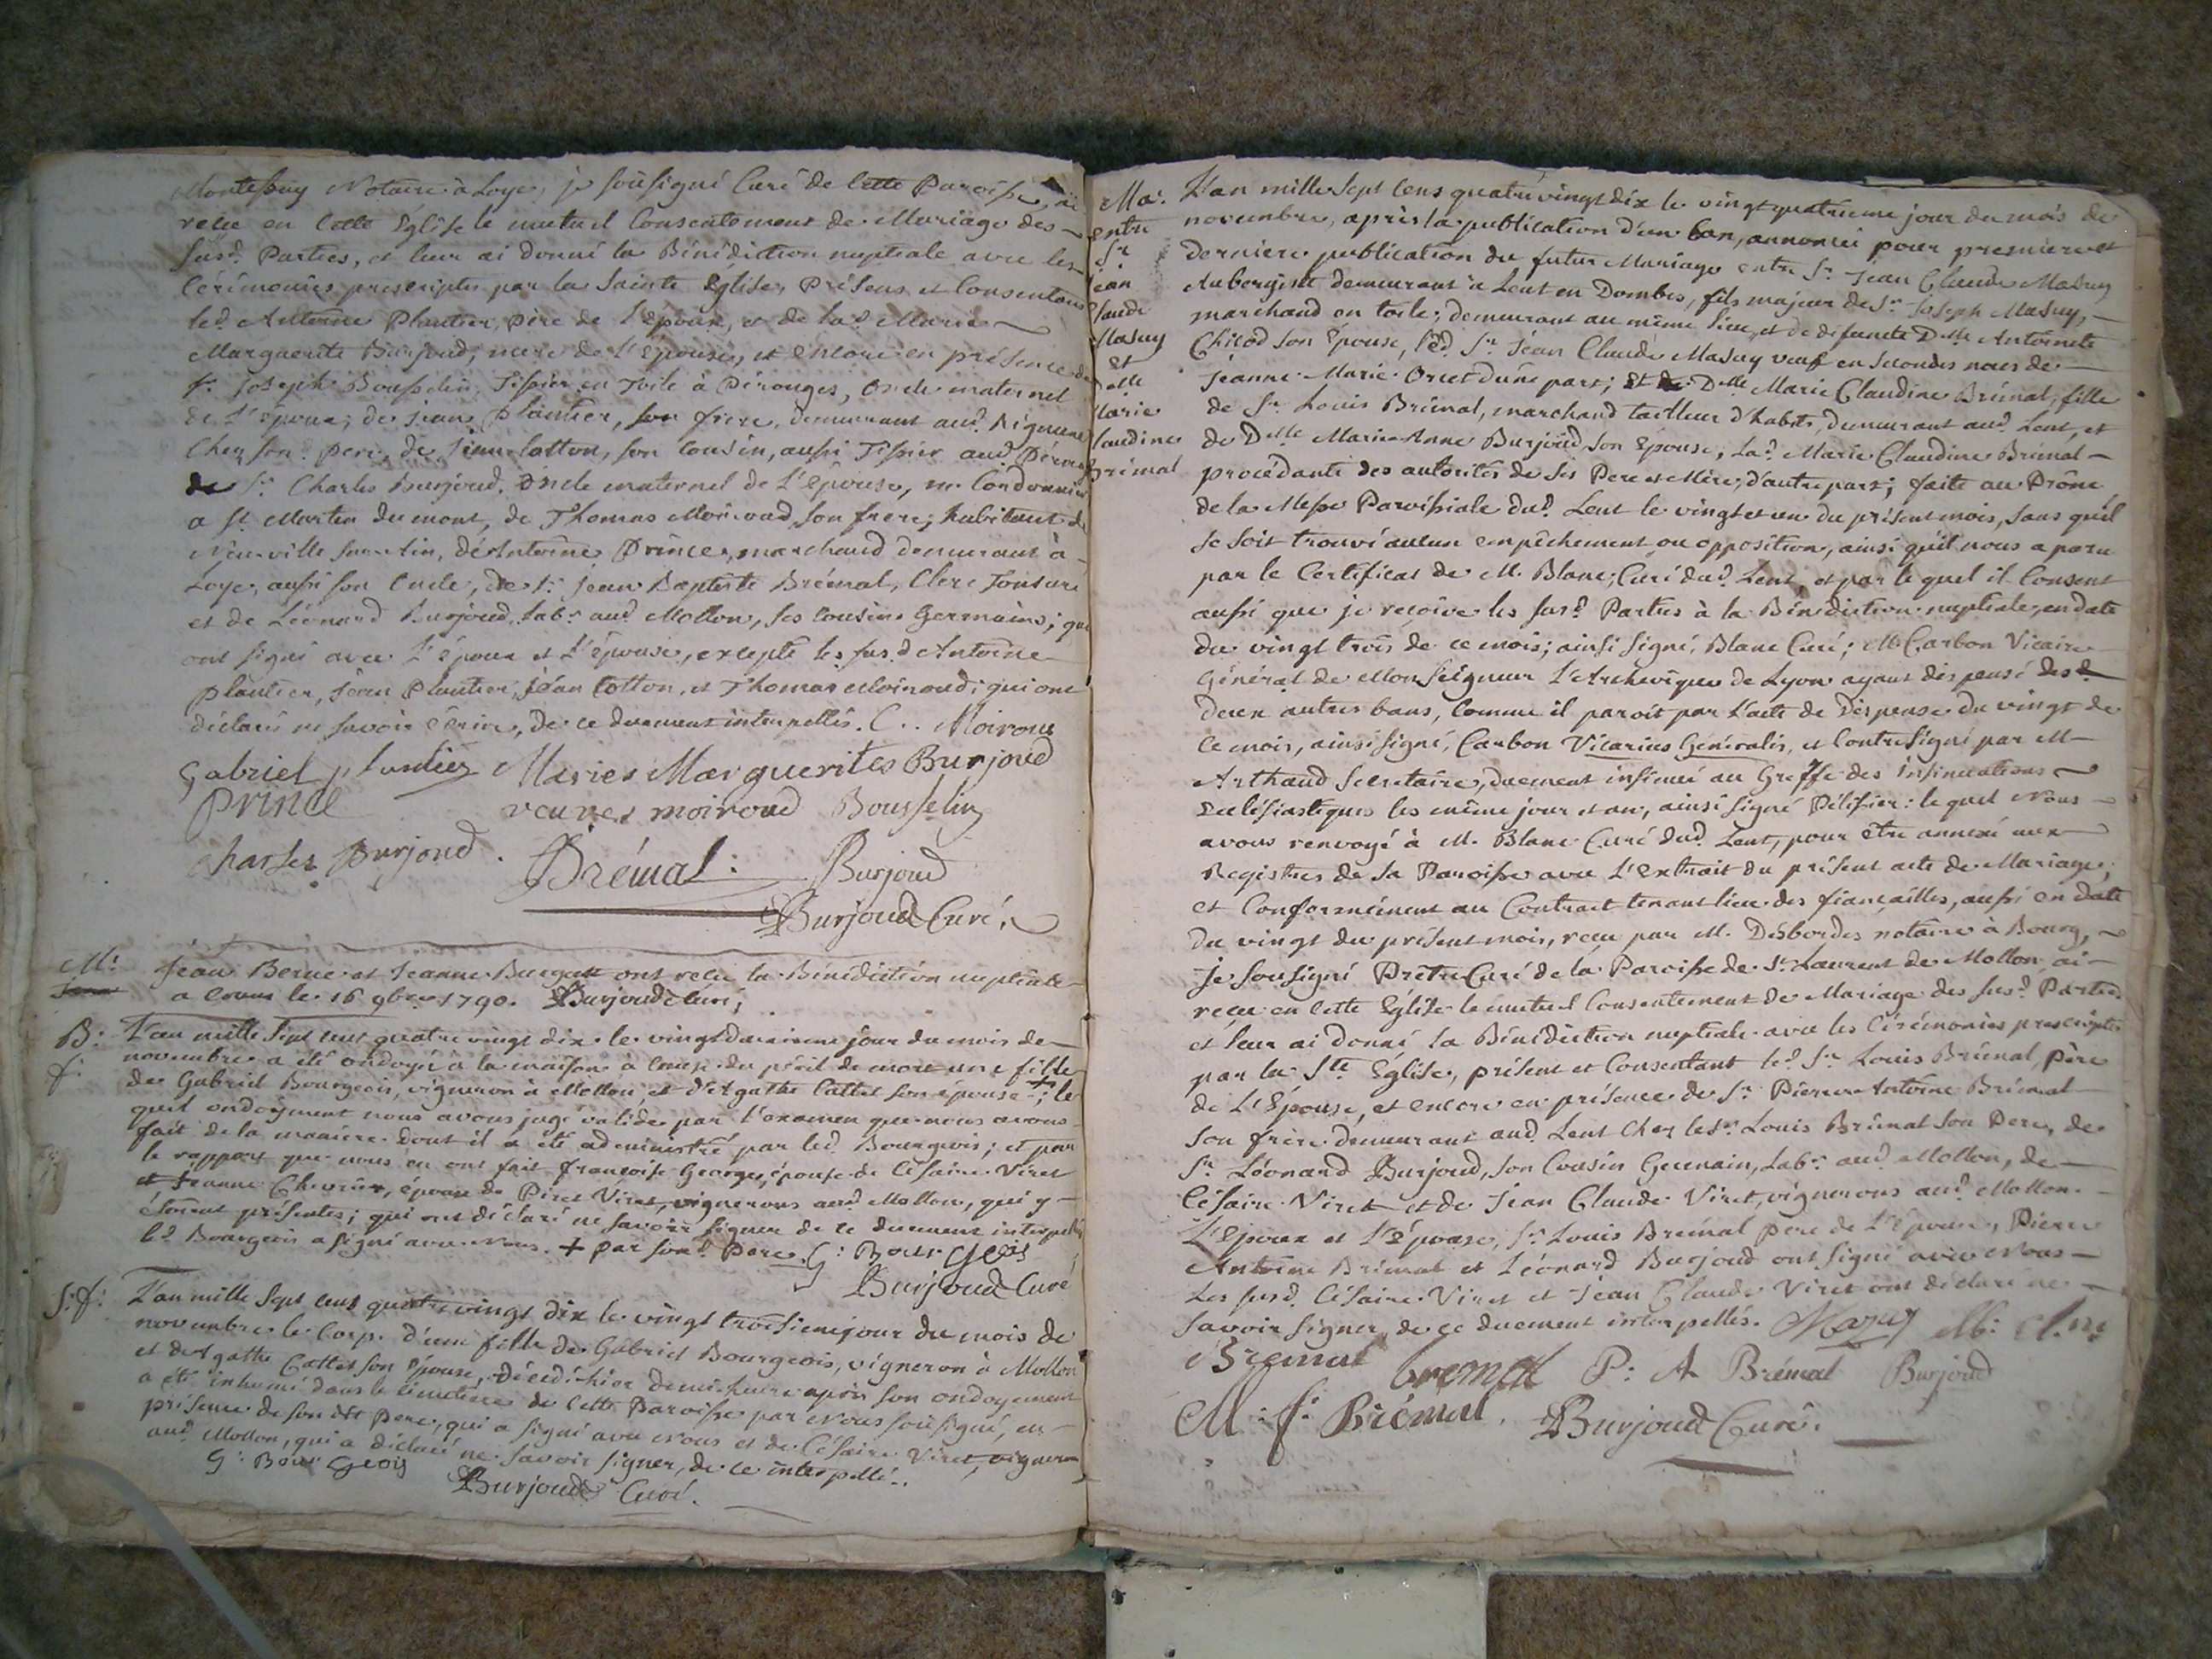 Montessuy Notaire à Loye, je soùsigné Curé de Cette Paroisse, ai
reçu en Cette Eglise le mutuel Consentement de Mariage des
susd. Parties, et leur ai donné la Bénédiction nuptiale avec les
Cérémonies prescriptes par la Sainte Église, Présens et Consentans
led. Antoine Plantier, père de l'époux, et de lad. Marie
Marguerite Burjoud, mere de l'Epouse, et encore en présence de
sr. Joseph Bousselin, Tissier en Toile à Pérouges, Oncle maternel
de l'époux, de jean Plantier, son frere, demeurant aud.
Chez son Pere, de jean Cotton, son Cousin, aussi Tissier aud. Pérouges
de Sr. Charles Burjoud, Oncle maternel de L'épouse, me. Cordonnier
a St. Martin du mont, de Thomas Moiroud, son frere, habitant de
Neuville sur Ain, de Antoine Prince, marchand demeurant à
Loye, aussi son Oncle, de Sr. jean Baptiste Brémal, Clerc Tonsuré
et de Léonard Burjoud, Labr. aud. Mollon, ses Cousins Germains; qui
ont signé avec L'époux et L'épouse, excepté les susd. Antoine
Plantier, Jean Plantier, Jean Cotton, et Thomas Moiroud, qui ont
déclaré ne savoir Ecrire, de ce duement interpellés. C.. Moiroux
Gabriel plantier Maries Marguerites Burjoud
Prince veuves moiroud Bousselin
Charles Burjoud. Brémal: Burjoud
Burjoud Curé.
M: Jean Berne et Jeanne ont reçu la Bénédiction nuptiale
a Crans le 16 9bre 1790. Burjoud Curé;
B: L'an mille sept cent quatre vingt dix le vingt deuxieme jour du mois de
f: novembre a été ondoyé à la maison à Cause du péril de mort une fille
de Gabriel Bourgeois, vigneron à Mollon, et d'Agathe Cattet son épouse +; le
quel ondoyment nous avons jugé valide par l'examen que nous avons
fait de la maniere dont il a été administré par led. Bourgeois; et par
le rapport que nous en ont fait françoise George, épouse de Césaire Viret
et Jeanne Chevrier, épouse de Piret Viret, vignerons aud. Mollon, qui y
étoient présentes; qui ont déclaré ne savoir signer de ce duement interpellé
led. Bourgeois a signé avec Nous. + par son d. Pere. G: Bour Geois
Burjoud Curé
S: f: L'an mille sept cent quatre vingt dix le vingt troisieme jour du mois de
novembre le Corp d'une fille de Gabriel Bourgeois, vigneron à Mollon
et de Agathe Cattet son Epouse, décédé hier demi heure après son ondoyement
a été inhumé dans le Cimetiere de Cette Paroisse par Nous soùsigné, en
présence de son dit Pere, qui a signé avec Nous et de Césaire Viret, vigneron
aud. Mollon, qui a déclaré ne savoir signer, de ce interpellé.
G: Bour Geois
Burjoud Curé.
Ma:
Entre
Sr
jean
Claude
Masuy
et
Delle
Marie
Claudine
Brémal
L'an mille sept cens quatre vingt dix le vingt quatrieme jour du mois de
novembre, après la publication d'un ban, annoncée pour premiere et
derniere publication du futur Mariage entre Sr. Jean Claude Masuy
Aubergiste demeurant à Lent en Dombes, fils majeur de Sr. Joseph Masuy,
marchand en toile, demeurant au même lieu, et de défunte Delle Antoinete
Chicod son Epouse, led. Sr. Jean Claude Masuy veuf en secondes noces de
Jeanne Marie Orset d'une part; Et de Delle Marie Claudine Brémal, fille
de Sr. Louis Brémal, marchand tailleur d'habits, demeurant aud. Lent, et
de Delle Marie Anne Burjoud son Epouse; Lad. Marie Claudine Brémal
procédante des autorités de ses Pere et Mere, d'autre part; faite au Prône
de la Messe Paroissiale dud. Lent le vingt et un du présent mois, sans qu'il
se soit trouvé aucun empêchement ou opposition, ainsi qu'il nous a paru
par le Certificat de M. Blanc, Curé dud. Lent, et par le quel il Consent
aussi que je reçoive les susd. Parties à la Bénédiction nuptiale, en date
du vingt trois de ce mois; ainsi signé, Blanc Curé; M. Carbon Vicaire
Général de Monseigneur L'Archevêque de Lyon ayant dispensé des
deux autres bans, Comme il paroit par L'acte de Dispense du vingt de
Ce mois, ainsi signé, Carbon Vicarius Generalis, et ContreSigné par M
Arthaud Secretaire, duement insinué au Greffe des insinuations
Eclésiastiques les même jour et an, ainsi signé Pélissier: lequel Nous
avons renvoyé à M. Blanc Curé dud. Lent, pour être annexé aux
Registres de sa Paroisse avec L'extrait du présent acte de Mariage;
et Conformément au Contract tenant lieu des fiançailles, aussi en date
du vingt du présent mois, reçu par M. Désbordes notaire à Bourg,
je soùsigné Prêtre Curé de la Paroisse de St. Laurent de Mollon ai
reçu en Cette Eglise le mutuel Consentement de Mariage des susd. Parties
et leur ai donné la Bénédiction nuptiale avec les Cérémonies prescriptes
par la Ste Église, présent et Consentant led. Sr. Louis Brémal, père
de L'Epouse, et encore en présence de Sr. Pierre Antoine Brémal
son frère demeurant aud. Lent Chez led. Sr. Louis Brémal son Pere, de
Sr. Léonard Burjoud, son Cousin Germain, Labr. aud. Mollon, de
Césaire Viret et de Jean Claude Viret, vignerons aud. Mollon.
L'Epoux et L'Epouse, Sr. Louis Brémal Pere de L'épouse, Pierre
Antoine Brémal et Léonard Burjoud ont signé avec Nous
Les susd. Césaire Viret et Jean Claude Viret ont déclaré ne
savoir signer, de ce duement interpellés. Mazuy M: Cl.ne
Brémal bremal P: A Brémal Burjoud
M: f: Brémal. Burjoud Curé.